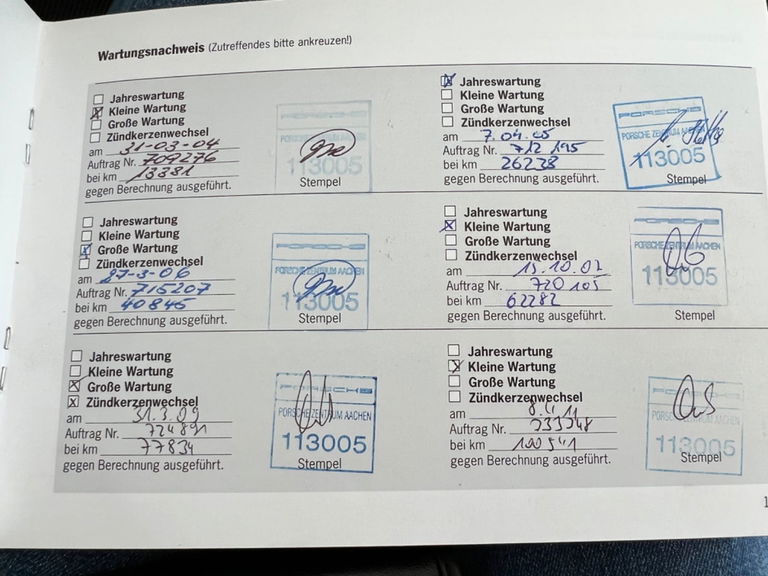 Wartungsnachweis (Zutreffendes bitte ankreuzen!)
Jahreswartung
Kleine Wartung
Große Wartung
Zündkerzenwechsel
am 31-03-04
Auftrag Nr. 709276
bei km 13381
gegen Berechnung ausgeführt.
PORSCHE
PORSCHE ZENTRUM AACHEN
113005
Stempel
Jahreswartung
Kleine Wartung
Große Wartung
Zündkerzenwechsel
am 7.04.05
Auftrag Nr. 712 195
bei km 26238
gegen Berechnung ausgeführt.
PORSCHE
PORSCHE ZENTRUM AACHEN
113005
Stempel
Jahreswartung
Kleine Wartung
Große Wartung
Zündkerzenwechsel
am 27-3-06
Auftrag Nr. 715207
bei km 40845
gegen Berechnung ausgeführt.
PORSCHE
PORSCHE ZENTRUM AACHEN
113005
Stempel
Jahreswartung
Kleine Wartung
Große Wartung
Zündkerzenwechsel
am 15.10.07
Auftrag Nr. 720 105
bei km 62282
gegen Berechnung ausgeführt.
PORSCHE
PORSCHE ZENTRUM AACHEN
113005
Stempel
Jahreswartung
Kleine Wartung
Große Wartung
Zündkerzenwechsel
am 31.3.09
Auftrag Nr. 724891
bei km 77834
gegen Berechnung ausgeführt.
PORSCHE
PORSCHE ZENTRUM AACHEN
113005
Stempel
Jahreswartung
Kleine Wartung
Große Wartung
Zündkerzenwechsel
am 8.4.11
Auftrag Nr.
bei km 100541
gegen Berechnung ausgeführt.
PORSCHE
PORSCHE ZENTRUM AACHEN
113005
Stempel